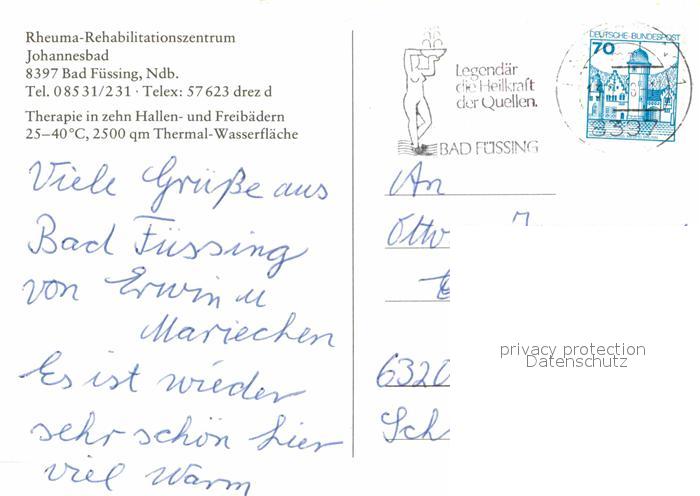 Rheuma-Rehabilitationszentrum
Johannesbad
8397 Bad Füssing, Ndb.
Tel. 08531/231 · Telex: 57623 drez d
Therapie in zehn Hallen- und Freibädern
25–40°C, 2500 qm Thermal-Wasserfläche
Viele Grüße aus
Bad Füssing
von Erwin u
Mariechen
Es ist wieder
sehr schön hier
viel Warm
Legendär
die Heilkraft
der Quellen.
BAD FÜSSING
DEUTSCHE BUNDESPOST
70
8397
An
Otto
6320
Sch
privacy protection
Datenschutz